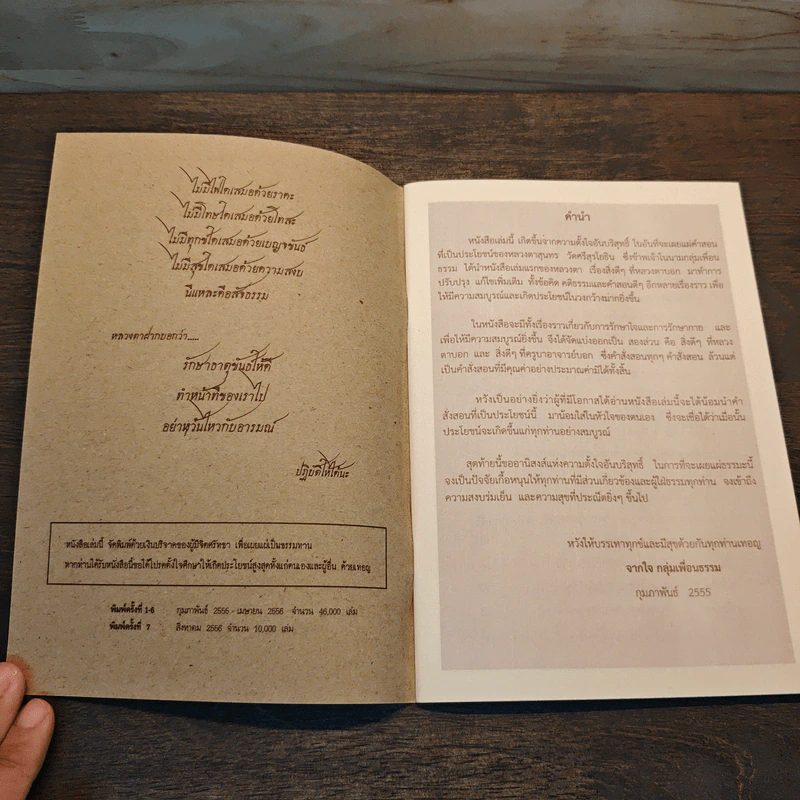 ไม่มีไฟใดเสมอด้วยราคะ
ไม่มีโทษใดเสมอด้วยโทสะ
ไม่มีทุกข์ใดเสมอด้วยเบญจขันธ์
ไม่มีสุขใดเสมอด้วยความสงบ
นี่แหละคือสัจธรรม
หลวงตาฝากบอกว่า.....
รักษาธาตุขันธ์ให้ดี
ทำหน้าที่ของเราไป
อย่าหวั่นไหวกับอารมณ์
ปฏิบัติให้ได้นะ
หนังสือเล่มนี้ จัดพิมพ์ด้วยเงินบริจาคของผู้มีจิตศรัทธา เพื่อเผยแผ่เป็นธรรมทาน
หากท่านได้รับหนังสือนี้ขอได้โปรดตั้งใจศึกษาให้เกิดประโยชน์สูงสุดทั้งแก่ตนเองและผู้อื่น ด้วยเทอญ
พิมพ์ครั้งที่ 1-6 กุมภาพันธ์ 2555 - เมษายน 2556 จำนวน 46,000 เล่ม
พิมพ์ครั้งที่ 7 สิงหาคม 2556 จำนวน 10,000 เล่ม
คำนำ
หนังสือเล่มนี้ เกิดขึ้นจากความตั้งใจอันบริสุทธิ์ ในอันที่จะเผยแผ่คำสอน
ที่เป็นประโยชน์ของหลวงตาสุนทร วัดศรีสุรโยธิน ซึ่งข้าพเจ้าในนามกลุ่มเพื่อน
ธรรม ได้นำหนังสือเล่มแรกของหลวงตา เรื่องสิ่งดีๆ ที่หลวงตาบอก มาทำการ
ปรับปรุง แก้ไขเพิ่มเติม ทั้งข้อคิด คติธรรมและคำสอนดีๆ อีกหลายเรื่องราว เพื่อ
ให้มีความสมบูรณ์และเกิดประโยชน์ในวงกว้างมากยิ่งขึ้น
ในหนังสือจะมีทั้งเรื่องราวเกี่ยวกับการรักษาใจและการรักษากาย และ
เพื่อให้มีความสมบูรณ์ยิ่งขึ้น จึงได้จัดแบ่งออกเป็น สองส่วน คือ สิ่งดีๆ ที่หลวง
ตาบอก และ สิ่งดีๆ ที่ครูบาอาจารย์บอก ซึ่งคำสั่งสอนทุกๆ คำสั่งสอน ล้วนแต่
เป็นคำสั่งสอนที่มีคุณค่าอย่างประมาณค่ามิได้ทั้งสิ้น
หวังเป็นอย่างยิ่งว่าผู้ที่มีโอกาสได้อ่านหนังสือเล่มนี้จะได้น้อมนำคำ
สั่งสอนที่เป็นประโยชน์นี้ มาน้อมใส่ในหัวใจของตนเอง ซึ่งจะเชื่อได้ว่าเมื่อนั้น
ประโยชน์จะเกิดขึ้นแก่ทุกท่านอย่างสมบูรณ์
สุดท้ายนี้ขออานิสงส์แห่งความตั้งใจอันบริสุทธิ์ ในการที่จะเผยแผ่ธรรมะนี้
จงเป็นปัจจัยเกื้อหนุนให้ทุกท่านที่มีส่วนเกี่ยวข้องและผู้ใฝ่ธรรมทุกท่าน จงเข้าถึง
ความสงบร่มเย็น และความสุขที่ประณีตยิ่งๆ ขึ้นไป
หวังให้บรรเทาทุกข์และมีสุขด้วยกันทุกท่านเทอญ
จากใจ กลุ่มเพื่อนธรรม
กุมภาพันธ์ 2555